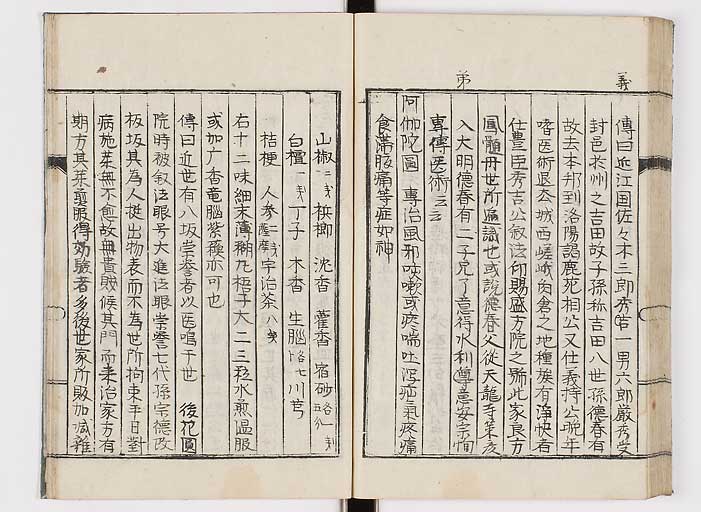 義
弟
傳曰近江国佐々木三郎秀第一男六郎嚴秀受
封邑於州之吉田故子孫称吉田八世孫德春有
故去本邦到洛陽謁鹿苑相公又仕義持公晩年
嗜医術退去城西嵯峨角倉之地種族有浄快者
仕豊臣秀吉公叙法印賜盛方院之号此家良方
鳳髓丹世所遍識也或説德春父從天龍寺策彦
入大明德春有二子兄了意得水利尊意安宗恂
専傳医術云云
阿伽陀圓 専治風邪咳嗽或疼喘吐瀉疝氣疼痛
食滞腹痛等症如神
山椒二戔 檳榔 沈香 藿香 宿砂各一戔五分
白檀一戔 丁子 木香 生腦各七 川芎
桔梗 人参二戔 宇治茶八戔
右十二味細末薄糊丸梧子大二三粒水煎温服
或加广香竜腦紫蘓亦可也
傳曰近世有八坂崇誉者以医鳴于世 後花園
院時被叙法眼号大進法眼崇誉七代孫宗德改
板坂其為人挺出物表而不為世所拘束平日對
病施薬無不愈故無貴賤候其門而来治家方有
期方其薬最服得効驗者多後世家所販加減雜